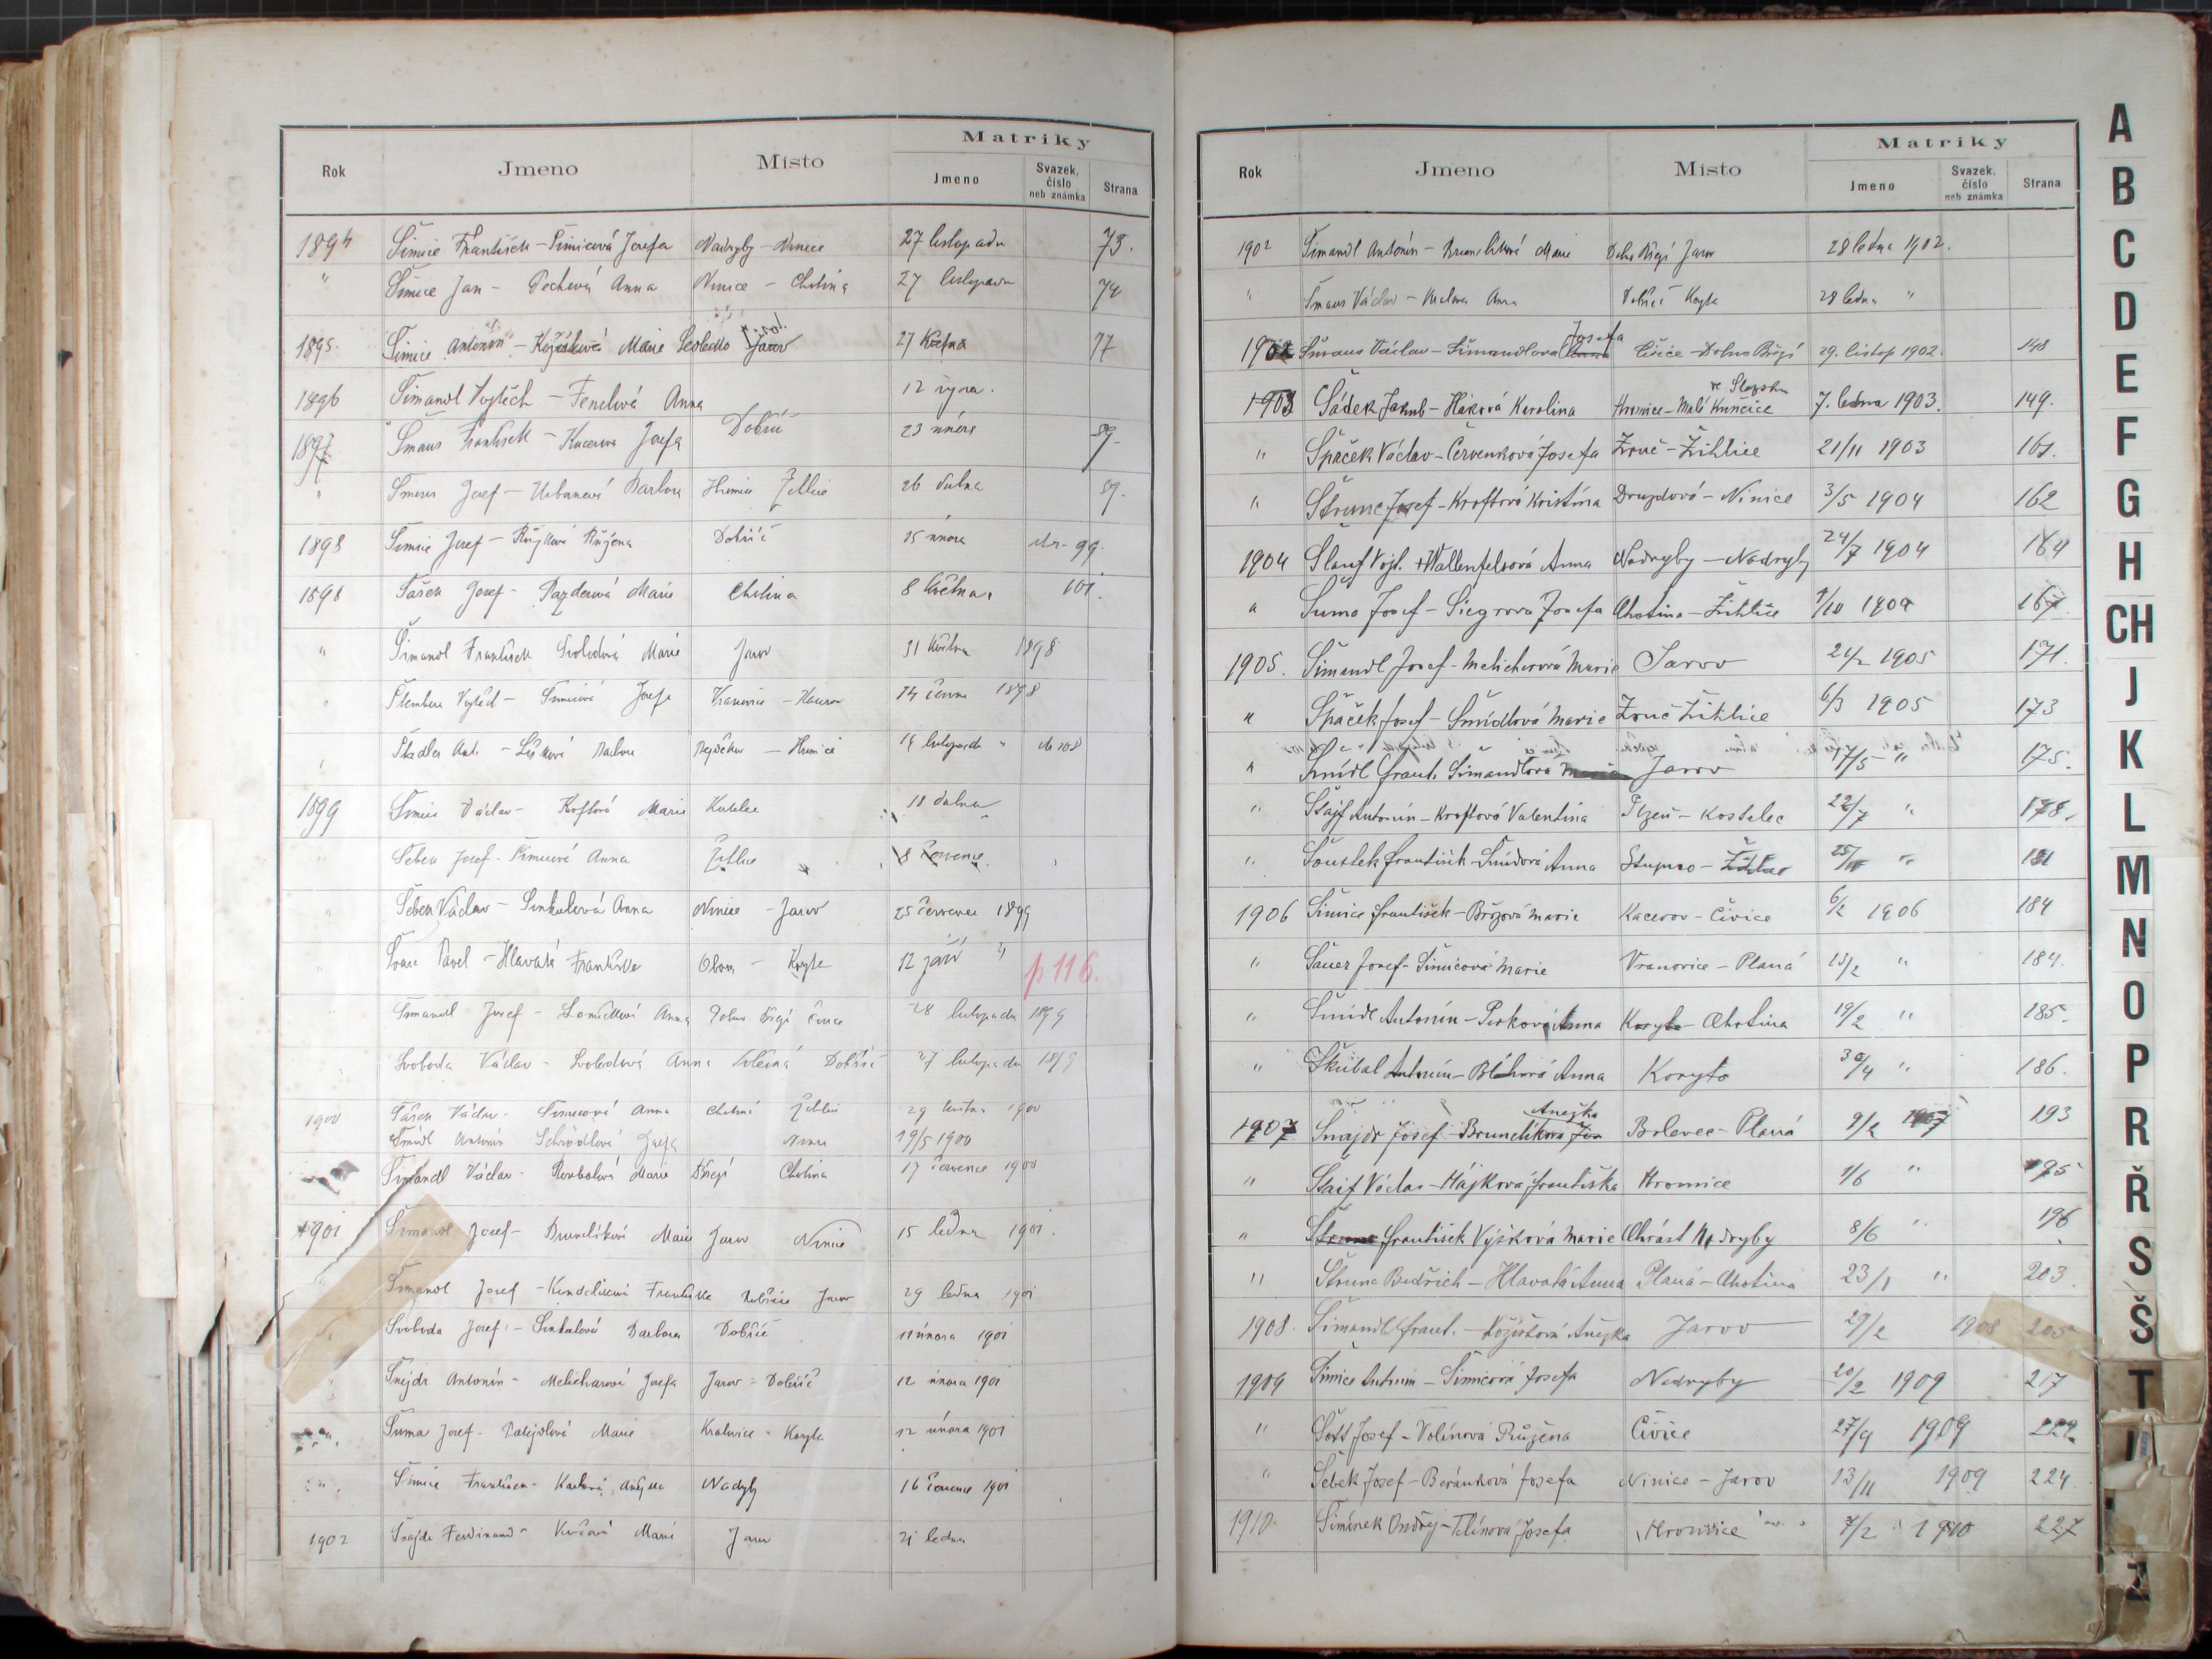 Matriky
Rok Jmeno Místo Jmeno Svazek, číslo neb známka Strana
1894 Šimice František - Šimicová Josefa Nadryby - Ninice 27 listopadu 73.
" Šimice Jan - Pechová Anna Ninice - Chotina 27 listopadu 74
1895. Šimice Antonín - Marie Sedlecko Jarov 27 Května 77
1896 Šimandl Vojtěch - Anna 12 října.
1897 Šmaus František - Josefa Dobříč 23 února 89.
" Josef - Urbanová Barbora Hromice Žihlice 26 dubna 89.
1898 Šimice Josef - Růžena Dobříč 15 února 99.
1898 Tášek Josef - Pazderová Marie Chotina 8 Května. 101.
" Šimandl František Svobodová Marie Jarov 31 Května 1898
" Josefa Vranovice - 14 června 1898
- Hromice 14 listopadu " 108
1899 Šimice Václav - Kroftová Marie 18 dubna
" Šebek Josef - Šimicová Anna Žihlice 8 Července
" Šebek Václav - Sinkulová Anna Ninice - Jarov 25 července 1899
" Pavel - Hlavatá Františka Obora - Koryta 12 září " p 116.
Šimandl Josef - Anna Dolno Břízí Čivice 28 listopadu 1899
Svoboda Václav - Svobodová Anna Dobříč 27 listopadu 1899
1900 Tášek Václav - Šimicová Anna Chotina Žihlice 29 května 1900
Šmídl Antonín Schrödlová Josefa Ninice 19/5 1900
Šimandl Václav - Marie Břízí Chotina 17 července 1900
1901 Šimandl Josef - Brunclíková Marie Jarov Ninice 15 ledna 1901.
Šimandl Josef - Františka Jarov 29 ledna 1901
Svoboda Josef - Sinkulová Barbora Dobříč 11 února 1901
" Šnejdr Antonín - Melicharová Josefa Jarov - Dobříč 12 února 1901
Šuma Josef - Marie Kralovice - Koryta 12 února 1901
" Šimice František - Nadryby 16 července 1901
1902 Šnajdr Ferdinand - Marie Jarov 21 ledna
Matriky
Rok Jmeno Místo Jmeno Svazek, číslo neb známka Strana
1902 Šimandl Antonín - Brunclíková Marie Dolno Břízí Jarov 28 ledna 1902.
" Šmaus Václav - Anna Dobříč Koryta 28 ledna "
Josefa
1902 Šmaus Václav - Šimandlová Anna Čivice - Dolno Břízí 29. listop 1902. 148
ve Slezsku
1903 Šádek Jakub - Háková Karolina Hromice - Malé Kunčice 7. ledna 1903. 149.
" Špaček Václav - Červenková Josefa Zruč - Žihlice 21/11 1903 161.
" Štrunc Josef - Kroftová Kristina Druzdová - Ninice 3/5 1904 162
1904 Šlauf Vojt. + Wallenfelsová Anna Nadryby - Nadryby 24/7 1904 164
" Šuma Josef - Siegrová Josefa Chotina - Žihlice 4/10 1904 167.
1905. Šimandl Josef - Melicharová Marie Jarov 21/2 1905 171.
" Špaček Josef - Šmídlová Marie Zruč Žihlice 6/3 1905 173
" Šmídl Frant. Šimandlová Marie Jarov 17/5 " 175.
" Štajf Antonín - Kroftová Valentina Plzeň - Kostelec 22/7 " 178.
" Šoustek František - Šmídová Anna Stupno - Žihlice 25/11 " 181
1906 Šimice František - Břízová Marie Kacerov - Čivice 6/2 1906 184
" Šauer Josef - Šimicová Marie Vranovice - Planá 13/2 " 184.
" Šmídl Antonín - Pirková Anna Koryta - Chotina 19/2 " 185.
" Škúbal Antonín - Bláhová Anna Koryta 30/4 " 186.
Anežka
1907 Šnajdr Josef - Brunclíková Jos Bolevec - Planá 9/2 1907 193
" Štaif Václav - Hájková Františka Hromice 1/6 " 195
" Štrunc František Výšková Marie Chrást Nadryby 8/6 " 196
" Štrunc Bedřich - Hlavatá Anna Planá - Chotina 23/1 " 203.
1908. Šimandl Frant. - Kožíšková Anežka Jarov 29/2 1908 205
1909 Šimice Antonín - Šimicová Josefa Nadryby 20/2 1909 217
" Šott Josef - Volínová Růžena Čivice 27/9 1909 222.
" Šebek Josef - Beránková Josefa Ninice - Jarov 13/11 1909 224
1910. Šimínek Ondřej - Tolínová Josefa Hromice 7/2 1910 227
A
B
C
D
E
F
G
H
CH
J
K
L
M
N
O
P
R
Ř
S
Š
T
Z